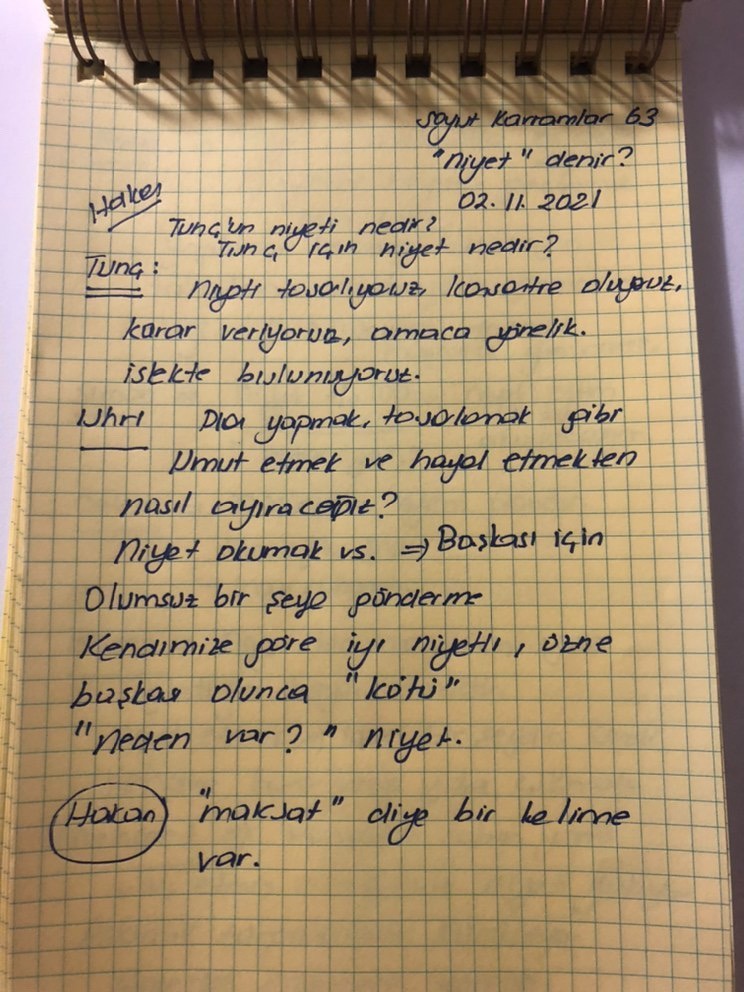 Soyut Kavramlar 63
"Niyet" denir?
02.11.2021
Tunç'un niyeti nedir?
Tunç için niyet nedir?
Tunç:
Niyeti tasarlıyoruz, konsantre oluyoruz,
karar veriyoruz, amaca yönelik.
istekte bulunuyoruz.
Dua yapmak, tasarlamak gibi
Umut etmek ve hayal etmekten
nasıl ayıracağız?
Niyet okumak vs. ⇒ Başkası için
Olumsuz bir şeye gönderme
Kendimize göre iyi niyetli, özne
başkası olunca "kötü"
"Neden var?" niyet.
Hakan "maksat" diye bir kelime
var.